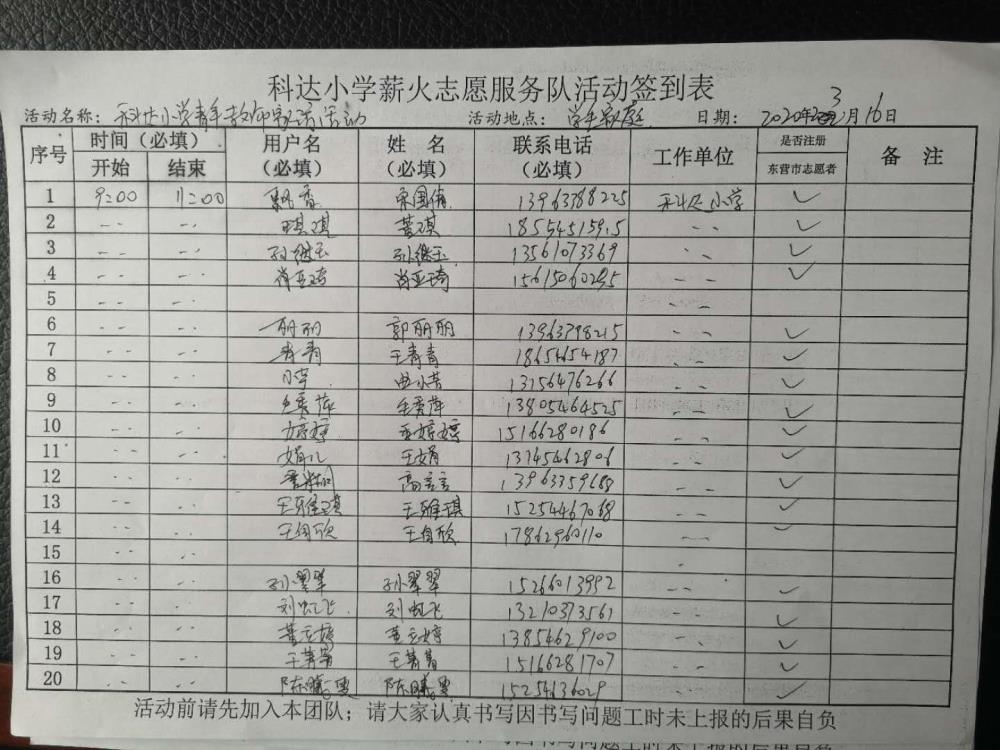 科达小学薪火志愿服务队活动签到表
活动名称：科达小学青年教师家访活动 活动地点：学生家庭 日期：2020年3月16日
序号 时间（必填） 开始 结束 用户名（必填） 姓名（必填） 联系电话（必填） 工作单位 是否注册东营市志愿者 备注
1 9:00 11:00 飘香 宋国倩 13963788225 科达小学 ✓
2 -- -- 琪琪 董琪 -- ✓
3 -- -- 孙继玉 孙继玉 13561073369 -- ✓
4 -- -- 肖亚琦 肖亚琦 15615060295 -- ✓
5 -- -- --
6 -- -- 丽丽 郭丽丽 13963798215 -- ✓
7 -- -- 青青 王青青 18654654187 -- ✓
8 -- -- 曲小芳 13156476266 -- ✓
9 -- -- 秀萍 秀萍 13805464525 -- ✓
10 -- -- 婷婷 婷婷 15166280186 -- ✓
11 -- -- 娟儿 王娟 13145462806 -- ✓
12 -- -- 高言言 13963359688 -- ✓
13 -- -- 王雅琪 王雅琪 15254467068 -- ✓
14 -- -- 王自欣 王自欣 17862960110 -- ✓
15 -- --
16 -- -- 孙翠翠 孙翠翠 15266013992 -- ✓
17 -- -- 刘虹飞 刘虹飞 13210373561 -- ✓
18 -- -- 黄立婷 黄立婷 13854629100 -- ✓
19 -- -- 王菁菁 王菁菁 15166281707 -- ✓
20 -- -- 陈曦雯 陈曦雯 15254636029 -- ✓
活动前请先加入本团队；请大家认真书写因书写问题工时未上报的后果自负